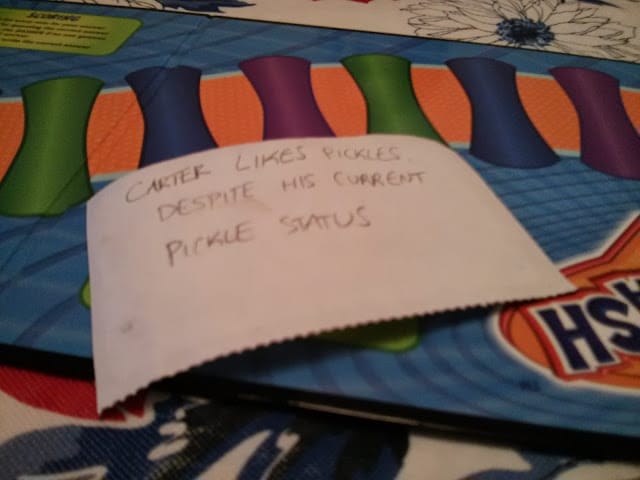 SCORING
CARTER LIKES PICKLES.
DESPITE HIS CURRENT
PICKLE STATUS